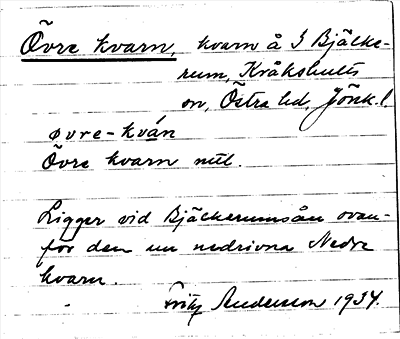 Övre kvarn, kvarn å 3 Bjälke-
rum, Kråkshults
sn, Östra hd, Jönk. l
øvre-kván
Övre kvarn mtl.
Ligger vid Bjälkerumsån ovan-
för den nu nedrivna Nedre
kvarn.
Fritz Andersson 1934.